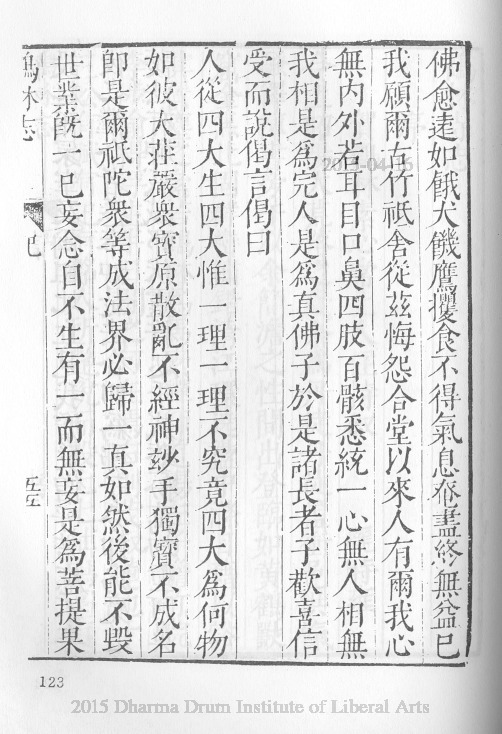 佛愈遠如餓犬饑鷹攫食不得氣息奄盡終無益巳
我願爾右竹祇舍從茲悔怨合堂以來人有爾我心
無内外若耳目口鼻四肢百骸悉統一心無人相無
我相是爲完人是爲真佛子於是諸長者子歡喜信
受而說偈言偈曰
人從四大生四大惟一理一理不究竟四大爲何物
如彼大莊嚴衆寶原散亂不經神妙手獨寶不成名
卽是爾祇陀衆等成法界必歸一真如然後能不毀
世業旣一巳妄念自不生有一而無妄是爲菩提果
林志 記 五五
123
2015 Dharma Drum Institute of Liberal Arts